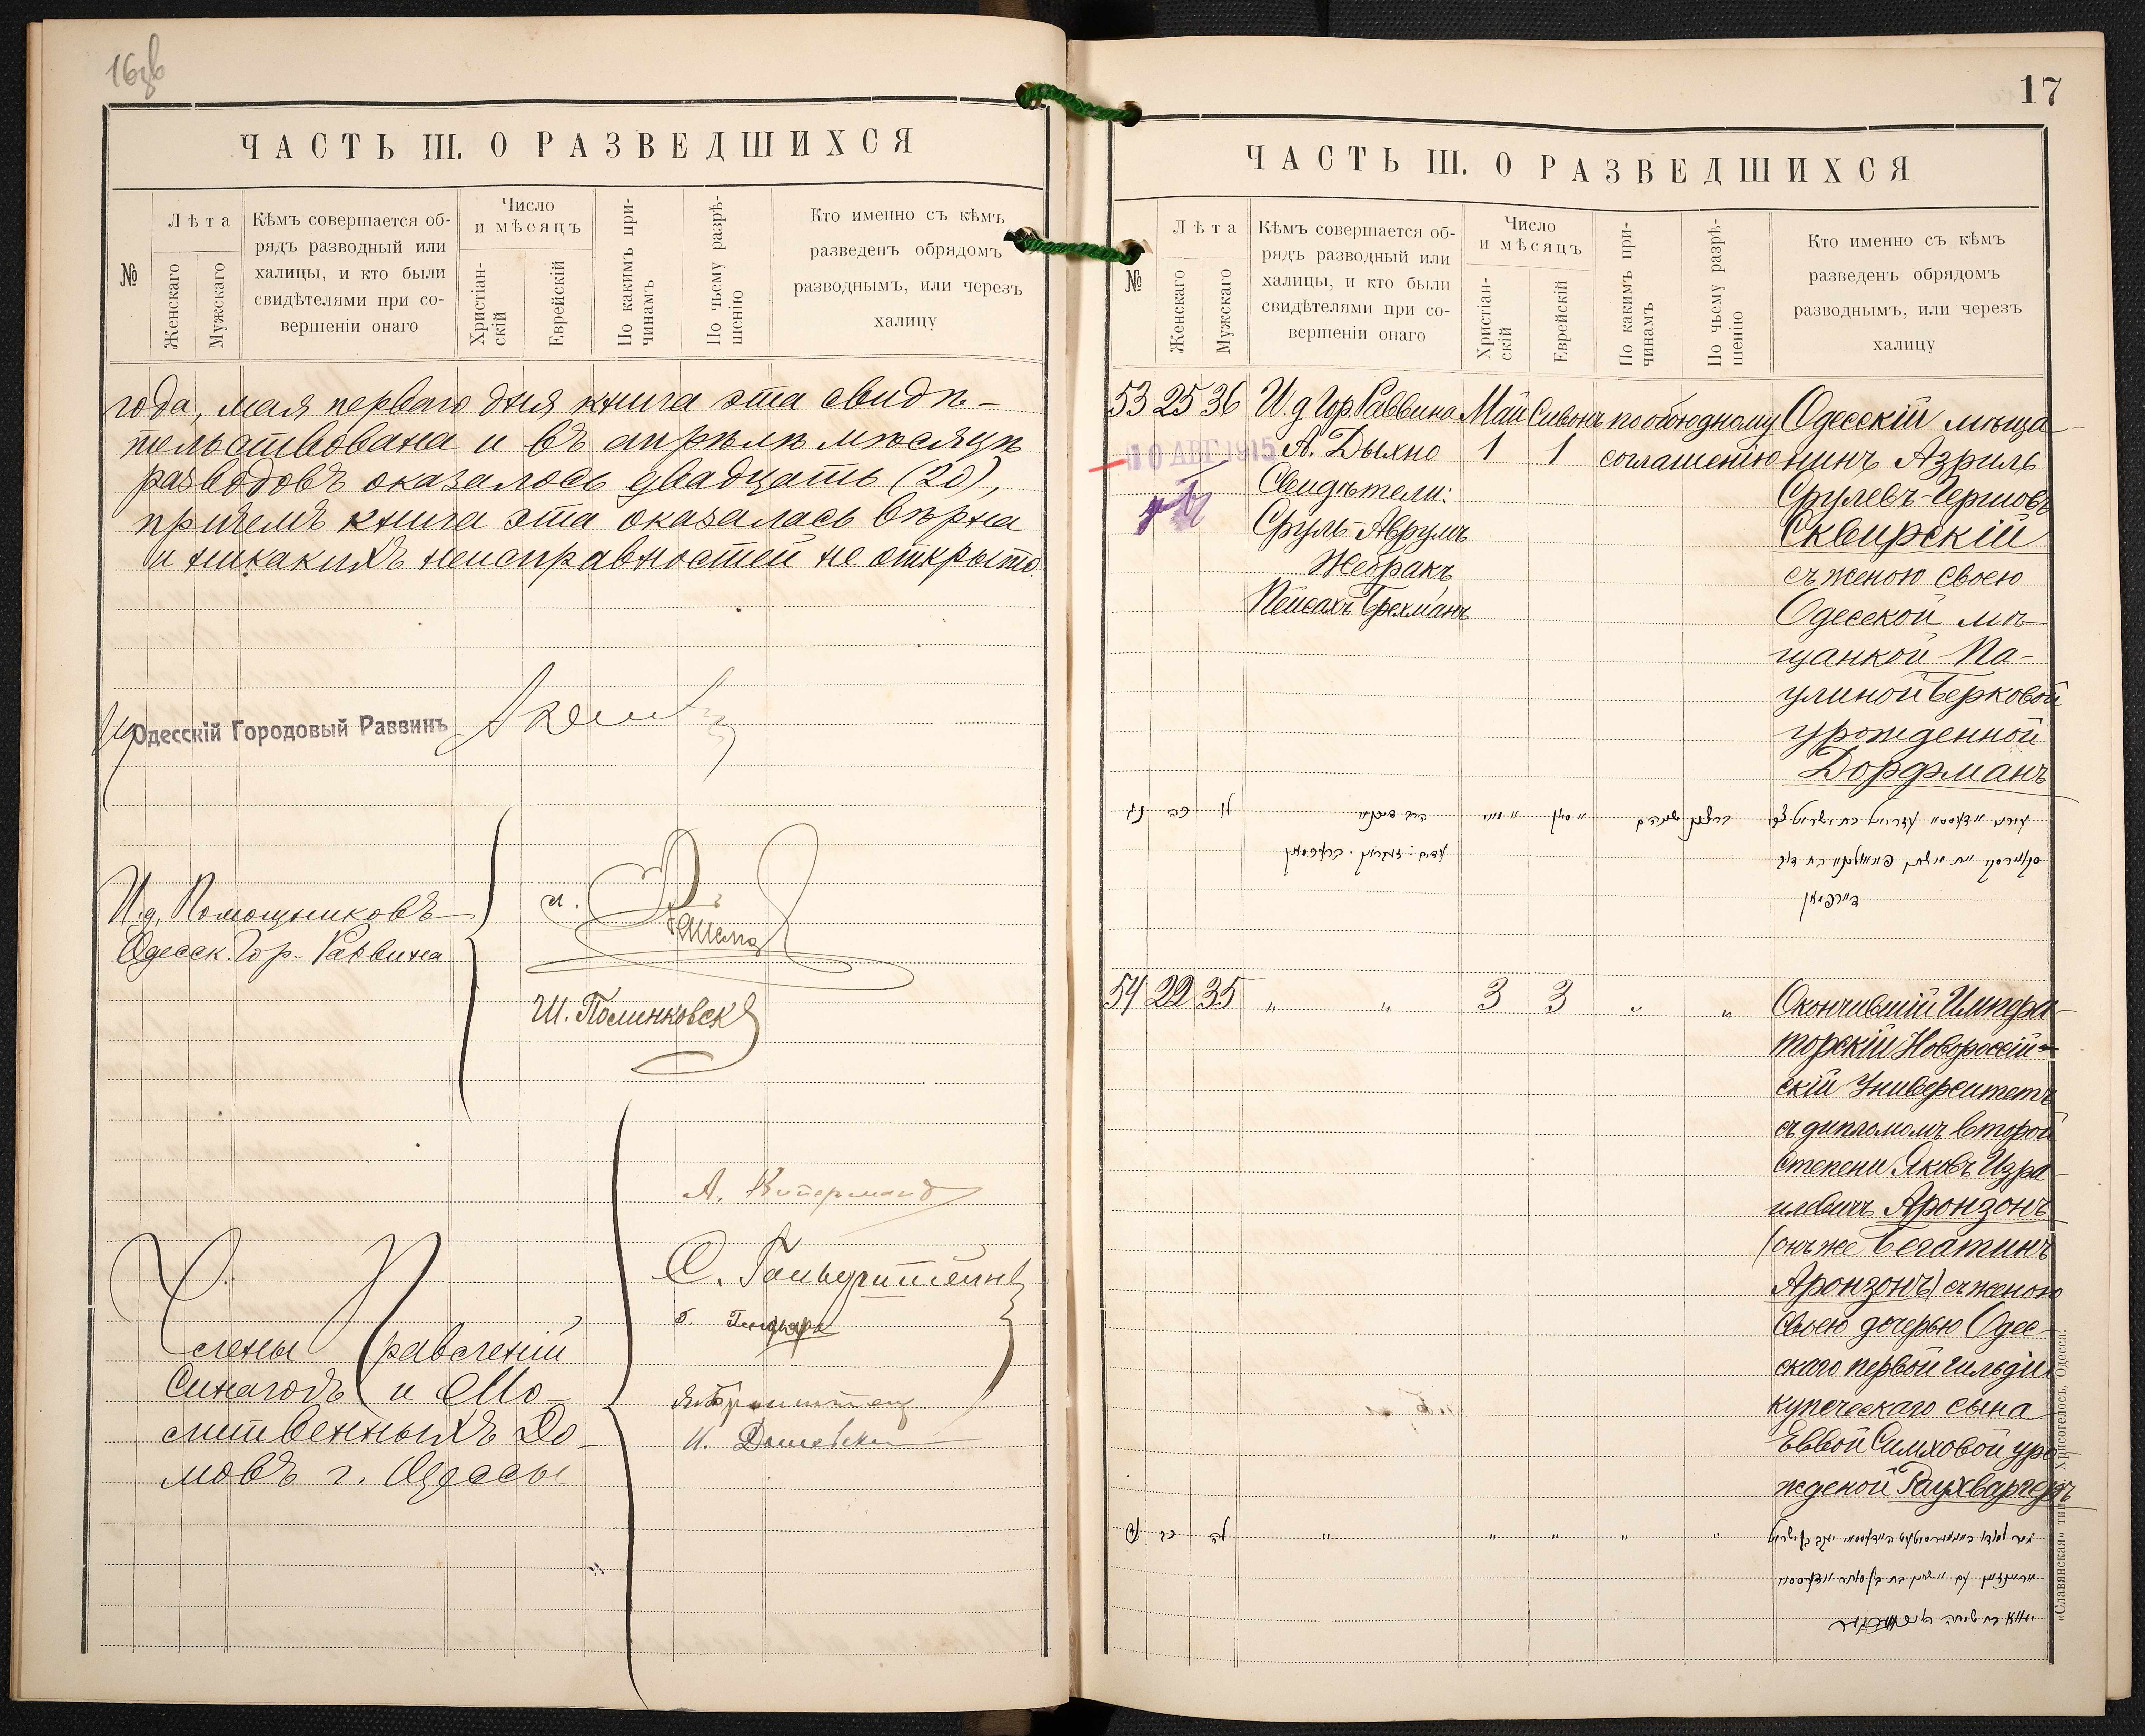 16об
ЧАСТЬ III. О РАЗВЕДШИХСЯ
№
Лѣта
Женскаго
Мужскаго
Кѣмъ совершается об-
рядъ разводный или
халицы, и кто были
свидѣтелями при со-
вершеніи онаго
Число
и мѣсяцъ
Христіан-
скій
Еврейскій
По какимъ при-
чинамъ
По чьему разрѣ-
шенію
Кто именно съ кѣмъ
разведенъ обрядомъ
разводнымъ, или черезъ
халицу
года, мая перваго дня книга эта свидѣ-
тельствована и въ апрѣлѣ мѣсяцѣ
разводовъ оказалось двадцать (20),
причемъ книга эта оказалась вѣрна
и никакихъ неисправностей не открыто.
И д Одесскій Городовый Раввинъ
И. д. Помощниковъ
Одесск. Гор. Раввина
Ш. Полинковск
А. Куперманъ
Члены Правленій
Синагогъ и Мо-
литвенныхъ До-
мовъ г. Одессы
17
ЧАСТЬ III. О РАЗВЕДШИХСЯ
№
Лѣта
Женскаго
Мужскаго
Кѣмъ совершается об-
рядъ разводный или
халицы, и кто были
свидѣтелями при со-
вершеніи онаго
Число
и мѣсяцъ
Христіан-
скій
Еврейскій
По какимъ при-
чинамъ
По чьему разрѣ-
шенію
Кто именно съ кѣмъ
разведенъ обрядомъ
разводнымъ, или черезъ
халицу
53 25 36 И д Гор. Раввина Май Сивонъ по обоюдному Одесскій мѣща-
10 АВГ 1915 А. Дыхно 1 1 соглашенію нинъ Азриль
Свидѣтели: Срулевъ-Гершовъ
Сруль-Аврумъ Сквирскій
Жебракъ съ женою своею
Пейсахъ Брехманъ Одесской мѣ-
щанкой Па-
улиной Берковой
урожденной
Дорфманъ
נג כה לו
דורפמאן
54 22 35 " " 3 3 " " Окончившій Импера-
торскій Новороссій-
скій Университетъ
съ дипломомъ второй
степени Яковъ Изра-
илевичъ Аронзонъ
(онъ же Бегатинъ
Аронзонъ) съ женою
своею дочерью Одес-
скаго первой гильдіи
купеческаго сына
Еввой Симховой уро-
жденой Раухвергеръ
נד כב לה " " " " "
«Славянская» тип. Хрисогелосъ, Одесса.